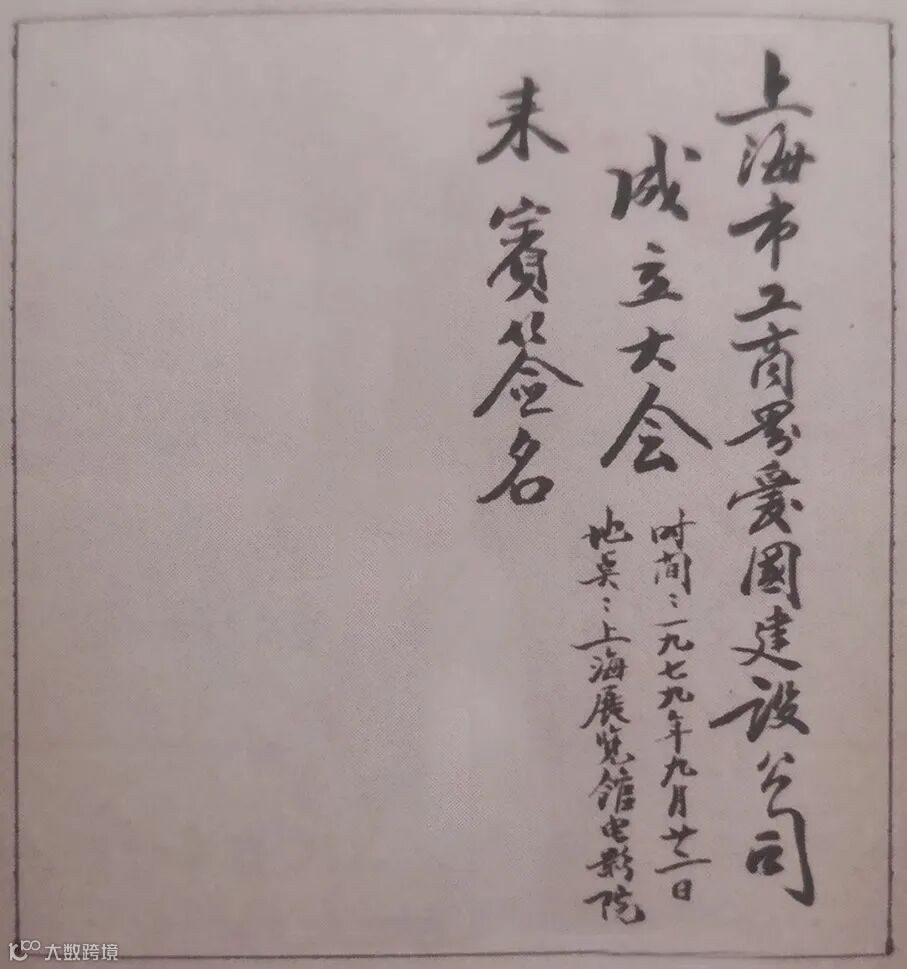 上海市工商界愛國建設公司
成立大会
时间：一九七九年九月廿二日
地点：上海展览馆电影院
来賓签名
大数跨境